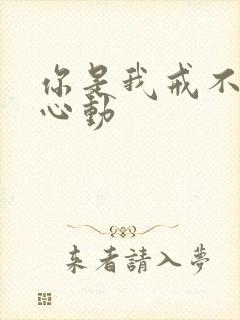 你是我戒不
心動
来者請入夢